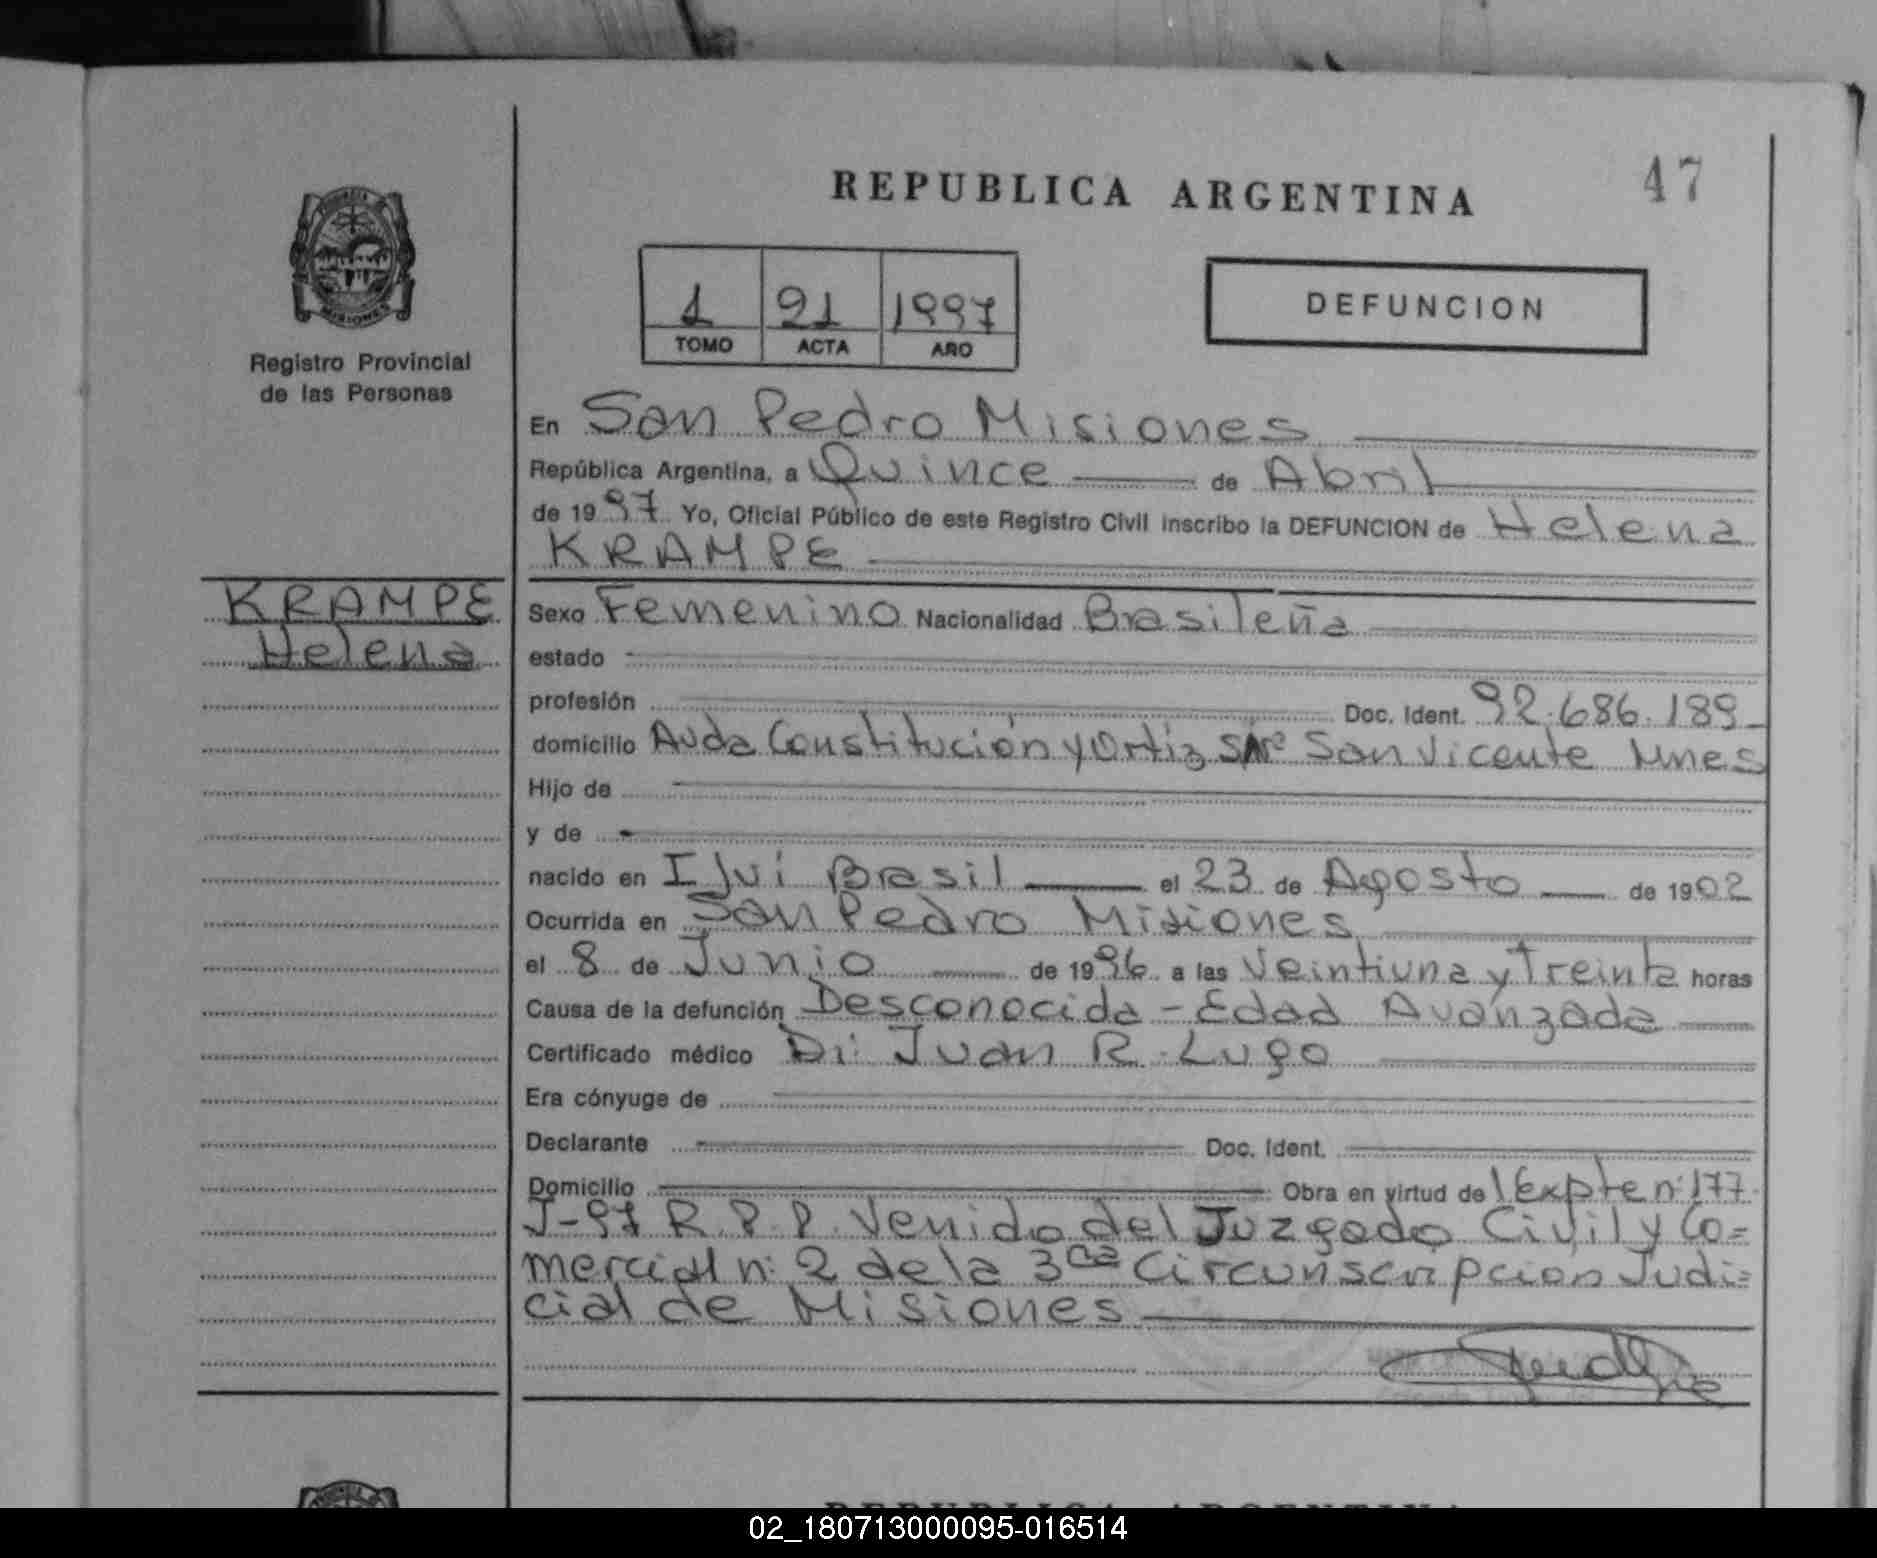 47
REPUBLICA ARGENTINA
MISIONES
Registro Provincial
de las Personas
1 91 1997
TOMO ACTA AÑO
DEFUNCION
En San Pedro Misiones
República Argentina, a Quince de Abril
de 1997 Yo, Oficial Público de este Registro Civil inscribo la DEFUNCION de Helena
KRAMPE
KRAMPE
Helena
Sexo Femenino Nacionalidad Brasileña
estado
profesión Doc. Ident. 92.686.189
domicilio Avda Constitución y Ortiz S/Nº San Vicente Mnes
Hijo de
y de
nacido en Ijui Brasil el 23 de Agosto de 1902
Ocurrida en San Pedro Misiones
el 8 de Junio de 1996 a las Veintiuna y Treinta horas
Causa de la defunción Desconocida - Edad Avanzada
Certificado médico Dr. Juan R. Lugo
Era cónyuge de
Declarante Doc. Ident.
Domicilio Obra en virtud de Expte nº 177
J-97 R.P.P. Venido del Juzgado Civil y Co=
mercial nº 2 de la 3ra Circunscripcion Judi=
cial de Misiones
REPUBLICA ARGENTINA
02_180713000095-016514